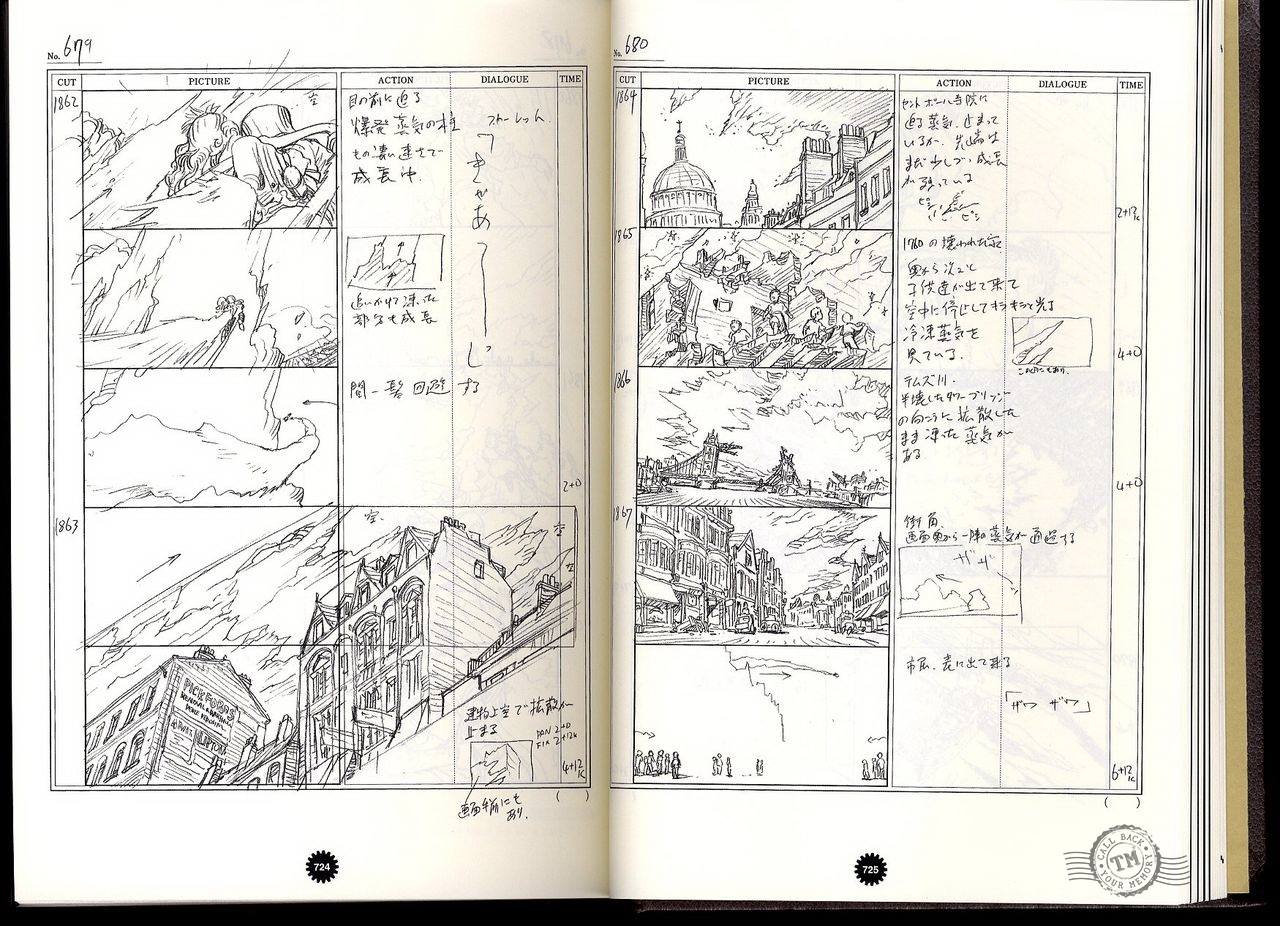 No. 679
CUT PICTURE ACTION DIALOGUE TIME
1862
空
目の前に迫る
爆発蒸気の柱
もの凄い速さで
成長中.
きゃあ
追いかけて凍った
部分も成長
間一髪 回避する
2+0
1863
空.
空
PICKFORDS
建物上空で拡散が
止まる
PAN 2+0
FIX 2+12K
4+12K
画面手前にも
あり.
( )
724
No. 680
CUT PICTURE ACTION DIALOGUE TIME
1864
セントポール寺院に
迫る蒸気. 止まって
いるが、先端は
まだ少しづつ成長
が残っている
ピシ
ピシ
2+12K
1865
1760の壊われた家
奥から次々と
子供達が出て来て
空中に停止してキラキラと光る
冷凍蒸気を
見ている.
4+0
1866
テムズ川.
半壊したタワーブリッジ
の向こうに拡散した
まま凍った蒸気が
ある
4+0
1867
街角
画面奥から一陣の蒸気が通過する
ザザ
市民、表に出て来る
「ザワ ザワ」
6+12K
( )
725
CALL BACK
TM
YOUR MEMORY